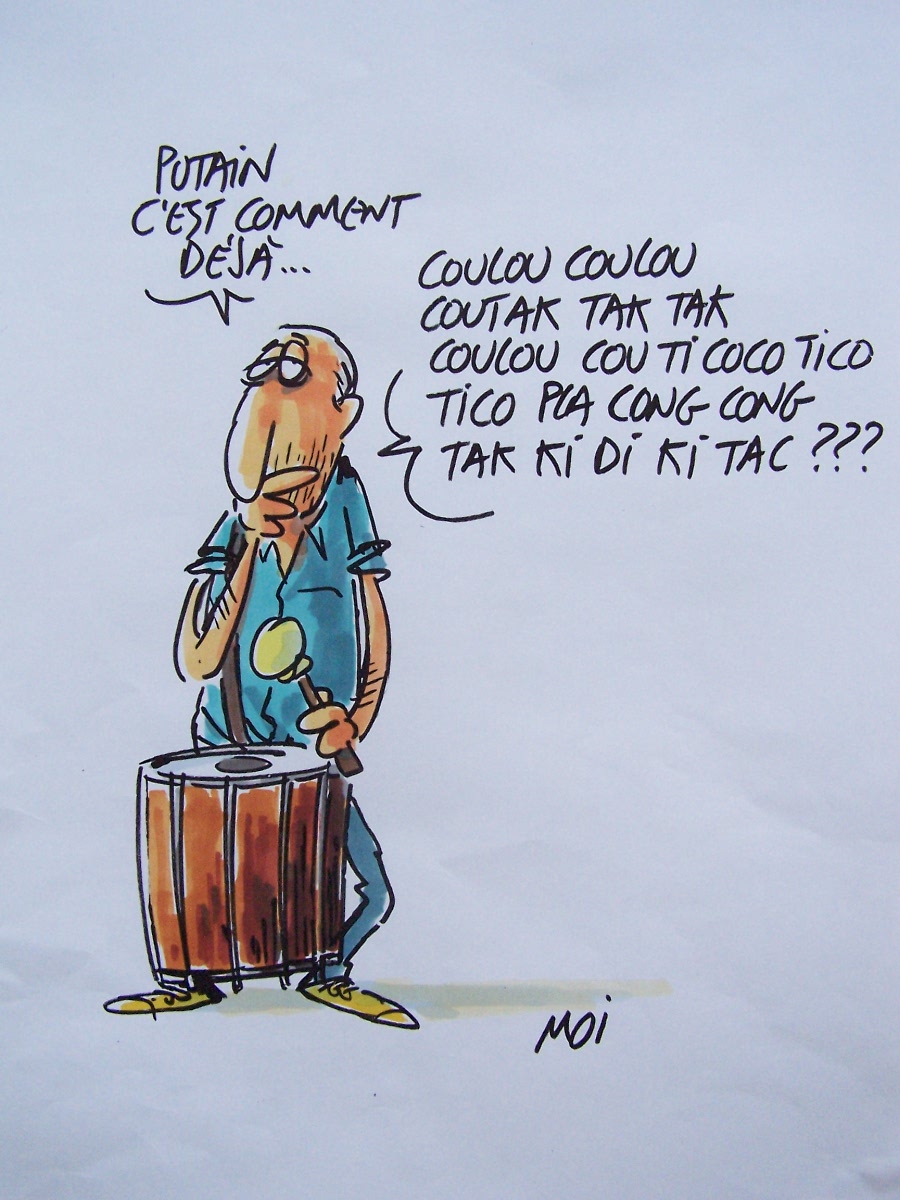 PUTAIN
C'EST COMMENT
DÉJÀ...
COULOU COULOU
COUTAK TAK TAK
COULOU COU TI COCO TICO
TICO PLA CONG CONG
TAK KI DI KI TAC ???
MOI